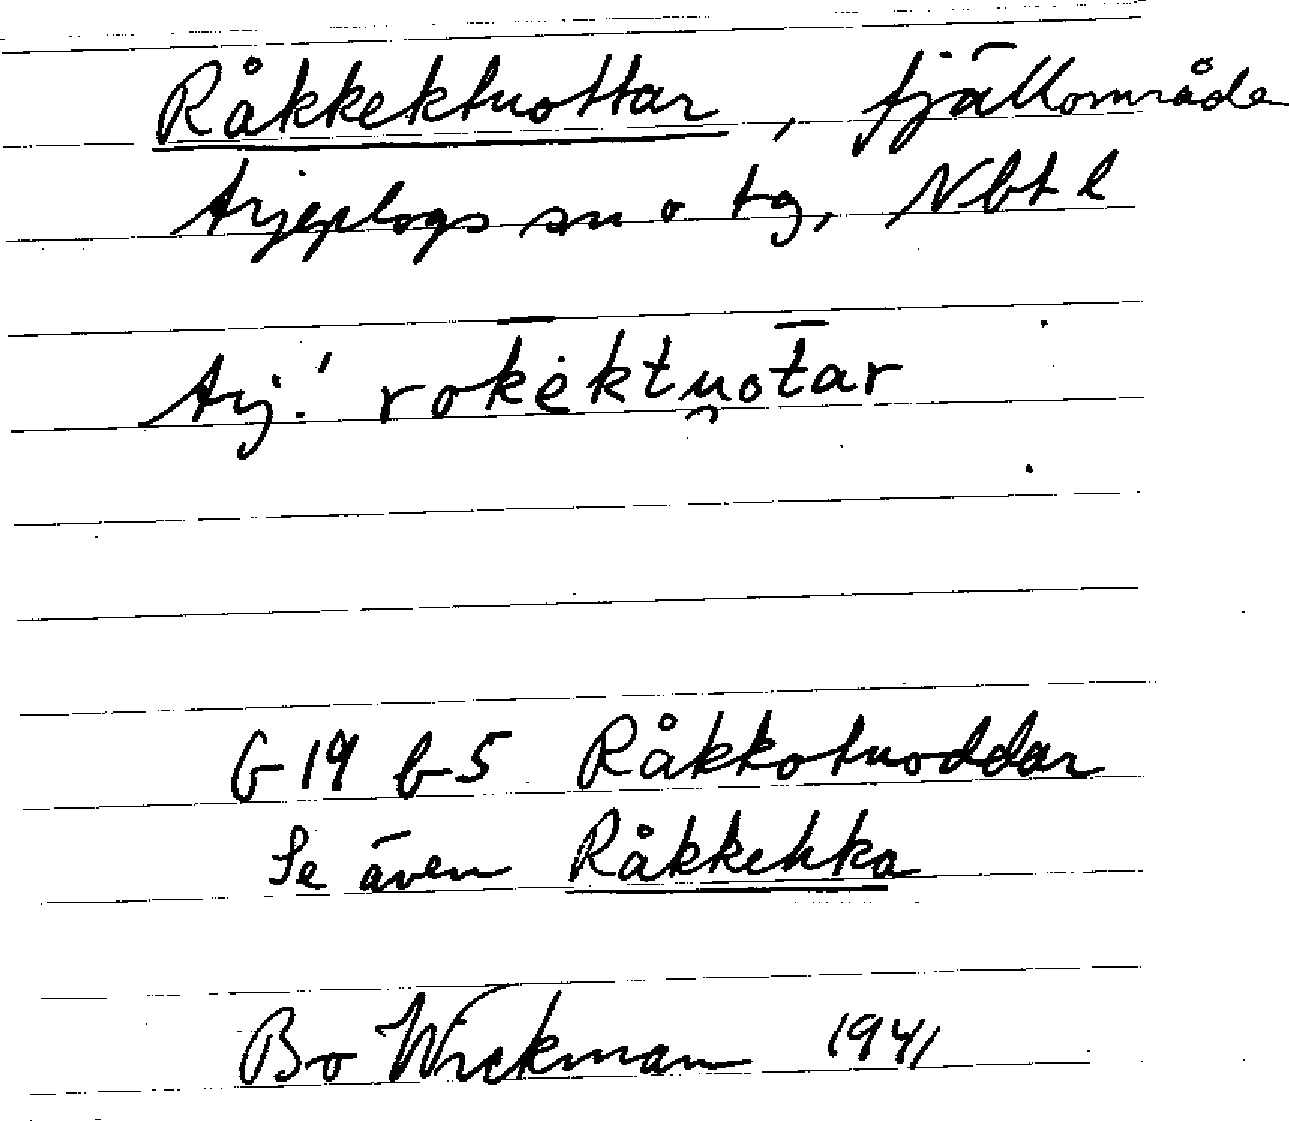 Råkkektuottar, fjällområde
Arjeplogs sn o tg, Nbt l
Arj.' rok̄ėktu̯ot̄ar
G 19 b-5 Råkkotuoddar
Se även Råkkehka
Bo Wickman 1941